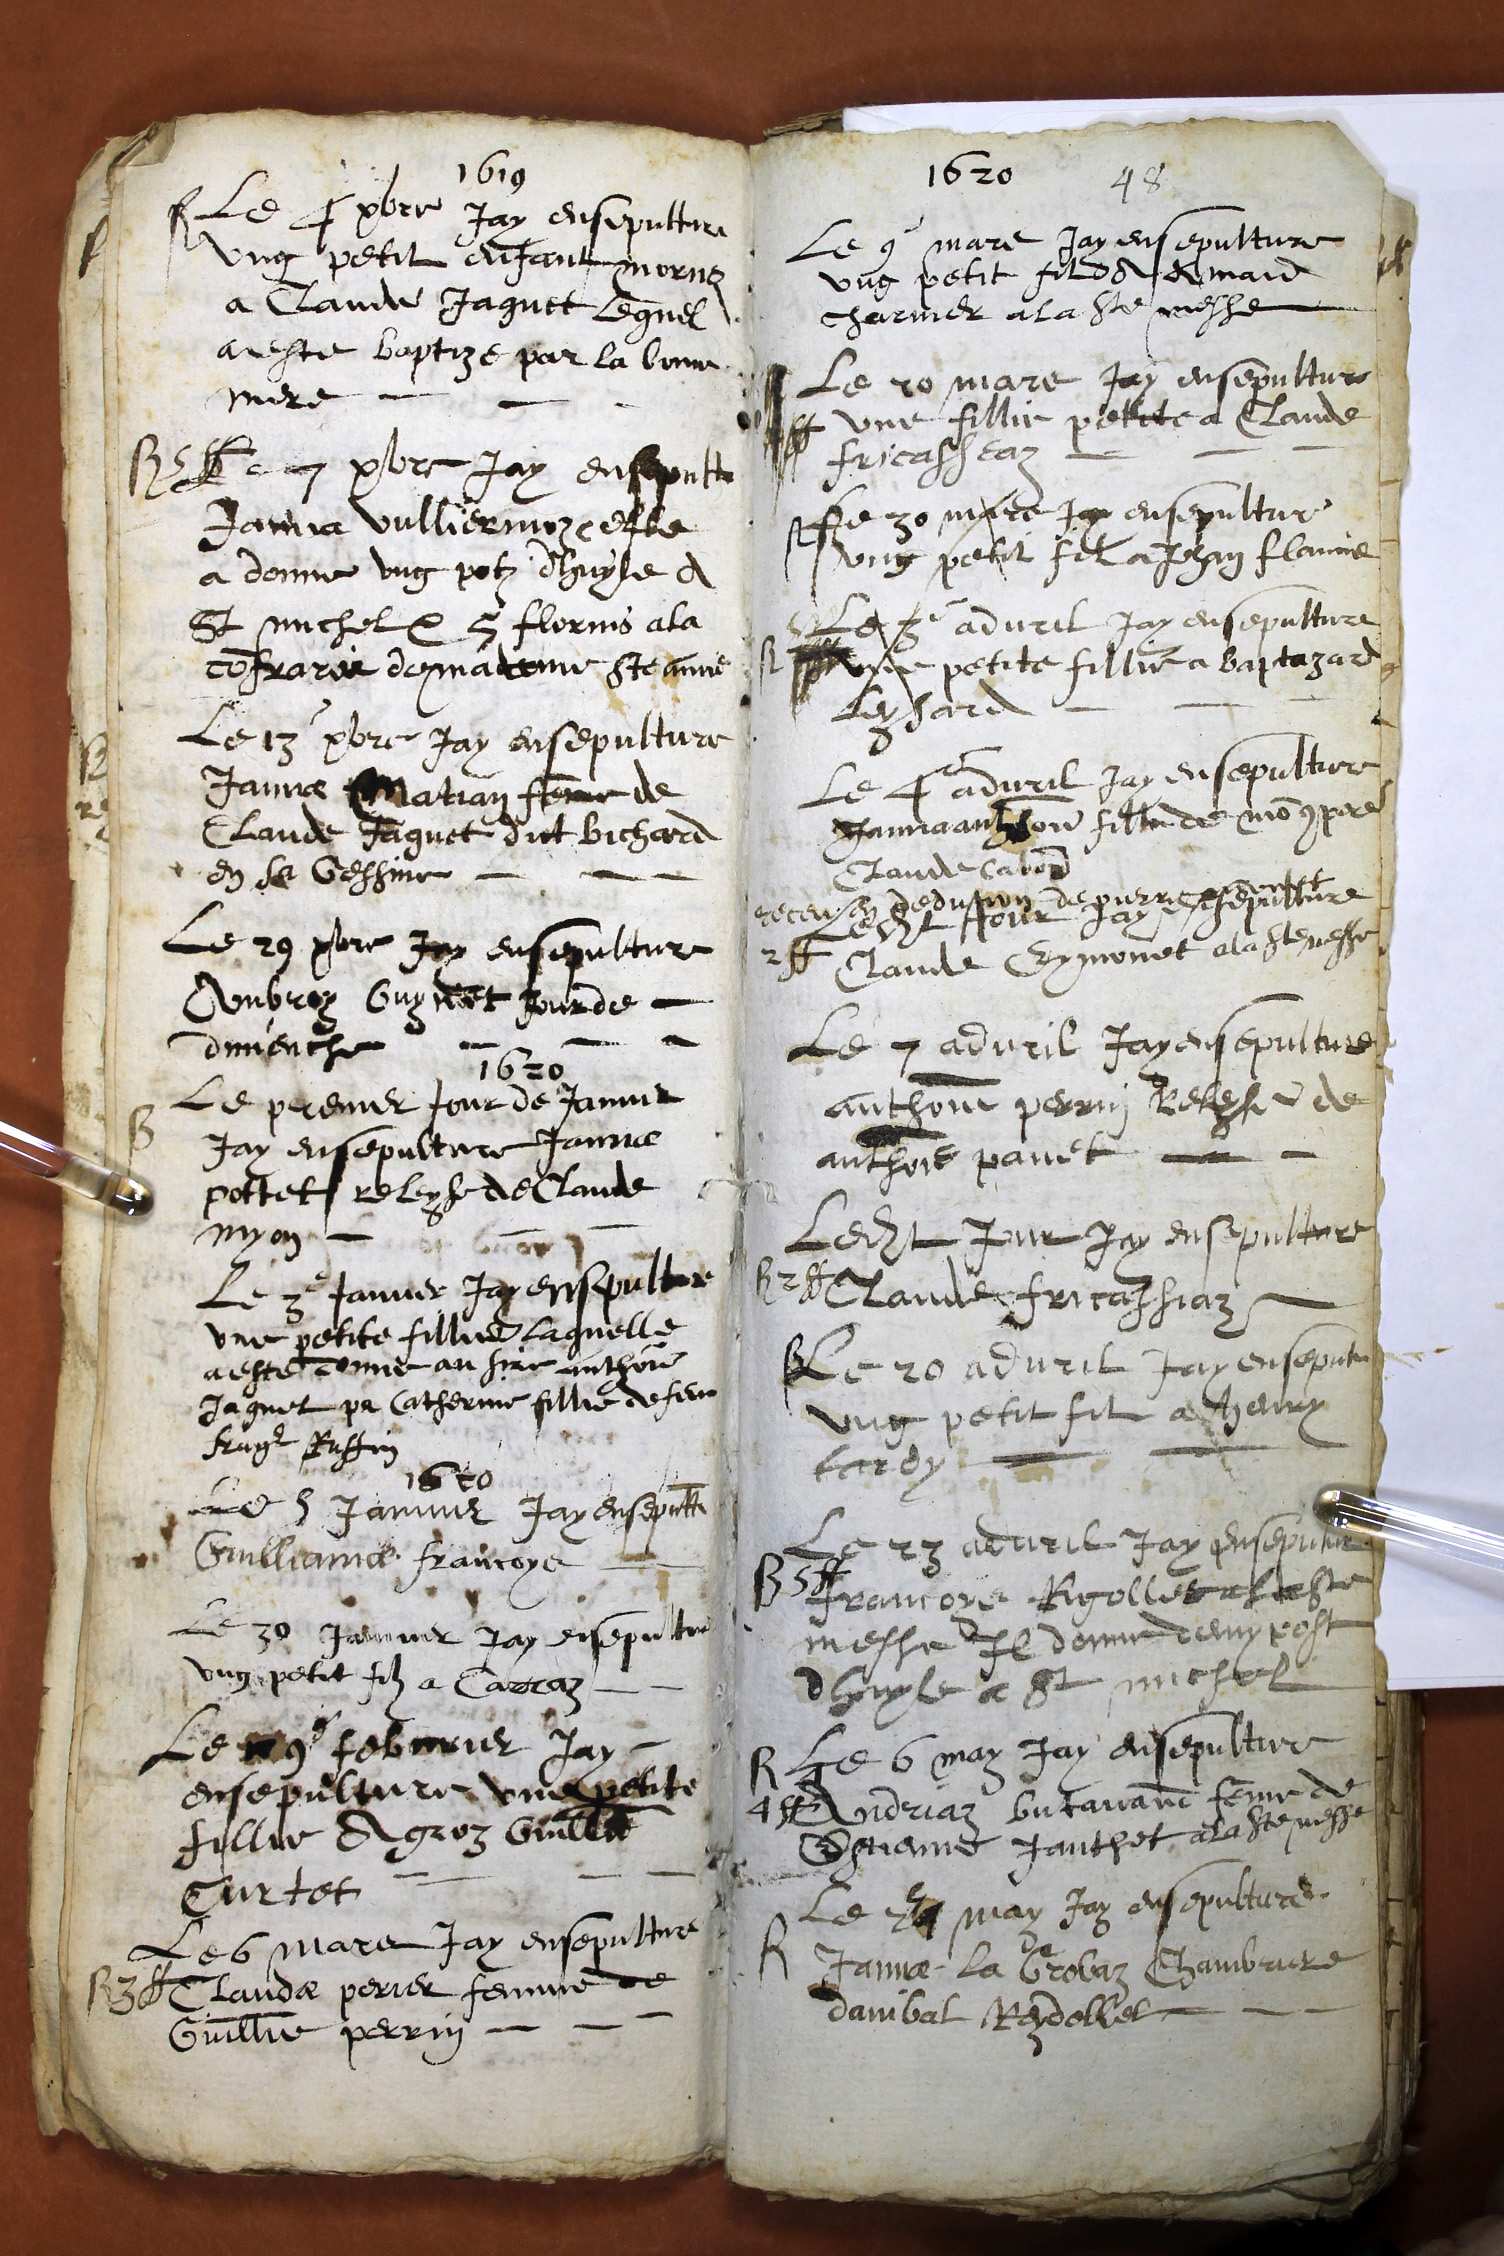 1619
R Le 4 xbre Jay ensepulture
ung petit enfant morne
a Claude Jaquet lequel
a este baptize par la bonne
mere
R 5 ff Le 7 xbre Jay ensepultu
Janna vulliermoz elle
a donne ung potz dhuyle a
St michel e 5 florins a la
cõfrarie de madame Ste anne
Le 13 xbre Jay ensepulture
Janna Matian feme de
Claude Jaquet dict bichard
en sa Gessine
Le 29 xbre Jay ensepulture
Ambroy Guynet Jour de
dimenche
1620
R Le premier Jour de Janvier
Jay ensepulture Janna
pottet releyse de Claude
myon
Le 3e Janvier Jay ensepulture
une petite fillie laquelle
a este donne au sire anthoie
Jaquet pr Catherine fillie de feu
Ruffin
1620
Le 5 Janvier Jay ensepultu
Guilliama francoye
Le 30 Janvier Jay ensepulture
ung petit filz a Carraz
Le 9e febvrier Jay
ensepulture une petite
fillie A groz Guillie
Curtet
Le 6 mare Jay ensepulture
R 3 ff Clauda perier femme de
Guillie perrin
1620 48
Le 9e mare Jay ensepulture
ung petit filz
charmer a la Ste messe
Le 20 mare Jay ensepulture
ff une fillie petite a Claude
fricasseaz
R Le 30 mare Jay ensepulture
ung petit fil a Jehan flamie
Le 3e advril Jay ensepulture
R une petite fillie a baptazard
leyzard
Le 4e advril Jay ensepulture
Janna anthoie fillie de mõ 9pere
Claude Cabod
de pierre
Ledit Jour Jay ensepulture
2 ff Claude Eymonet a la Ste messe
Le 7 advril Jay ensepulture
anthoie perrin Releyse de
anthoie pavet
Ledit Jour Jay ensepulture
R 2 ff Claude fricassiaz
R Le 20 advril Jay ensepultu
ung petit fil a henry
tardy
Le 23 advril Jay ensepultur
R 5 ff francoyse Rigollet a la Ste
messe Il donne demy post
dhuyle a St michel
R Le 6 may Jay ensepulture
4 ff Andriaz feme de
Estienne Janthet a la Ste messe
Le may Jay ensepulture
R Janna la Grobaz Chambriere
danibal Reydellet